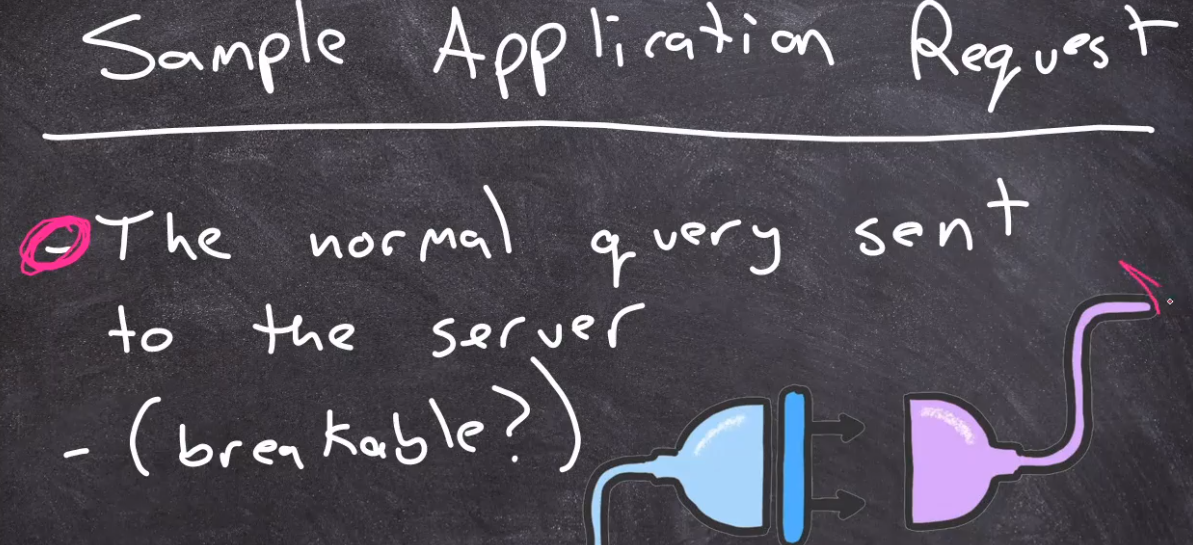 Sample Application Request
- The normal query sent
to the server
- (breakable?)